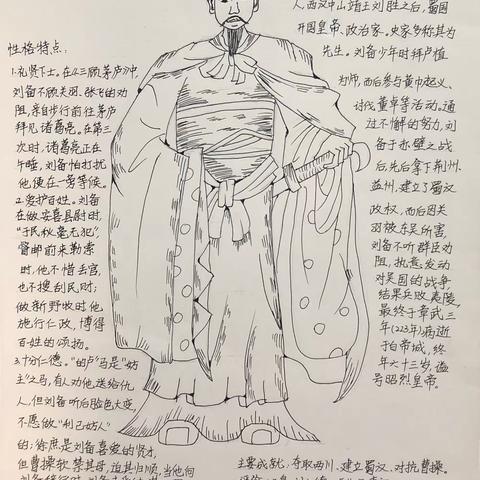 性格特点：
1.礼贤下士。在《三顾茅庐》中，
刘备不顾关羽、张飞的劝
阻，亲自步行前往茅庐
拜见诸葛亮。在第三
次时，诸葛亮正在
午睡，刘备怕打扰
他便在一旁等候。
2.爱护百姓。刘备
在做安喜县尉时，
“于民秋毫无犯”，
督邮前来勒索
时，他不惜丢官，
也不搜刮民财；
做新野牧时他
施行仁政，博得
百姓的颂扬。
3.十分仁德。“的卢”马是“妨
主”之马，有人劝他送给仇
人，但刘备听后脸色大变，
不愿做“利己妨人”
的；徐庶是刘备喜爱的贤才，
但曹操软禁其母，迫其归顺，当他向
人，西汉中山靖王刘胜之后，蜀国
开国皇帝、政治家。史家多称其为
先生。刘备少年时拜卢植
为师，而后参与黄巾起义、
讨伐董卓等活动。通
过不懈的努力，刘
备于赤壁之战
后，先后拿下荆州、
益州，建立了蜀汉
政权，而后因关
羽被东吴所害，
刘备不听群臣劝
阻，执意发动
对吴国的战争，
结果兵败夷陵，
最终于章武三
年(223年)病逝
于白帝城，终
年六十三岁，谥
号昭烈皇帝。
主要成就：夺取西川、建立蜀汉、对抗曹操。